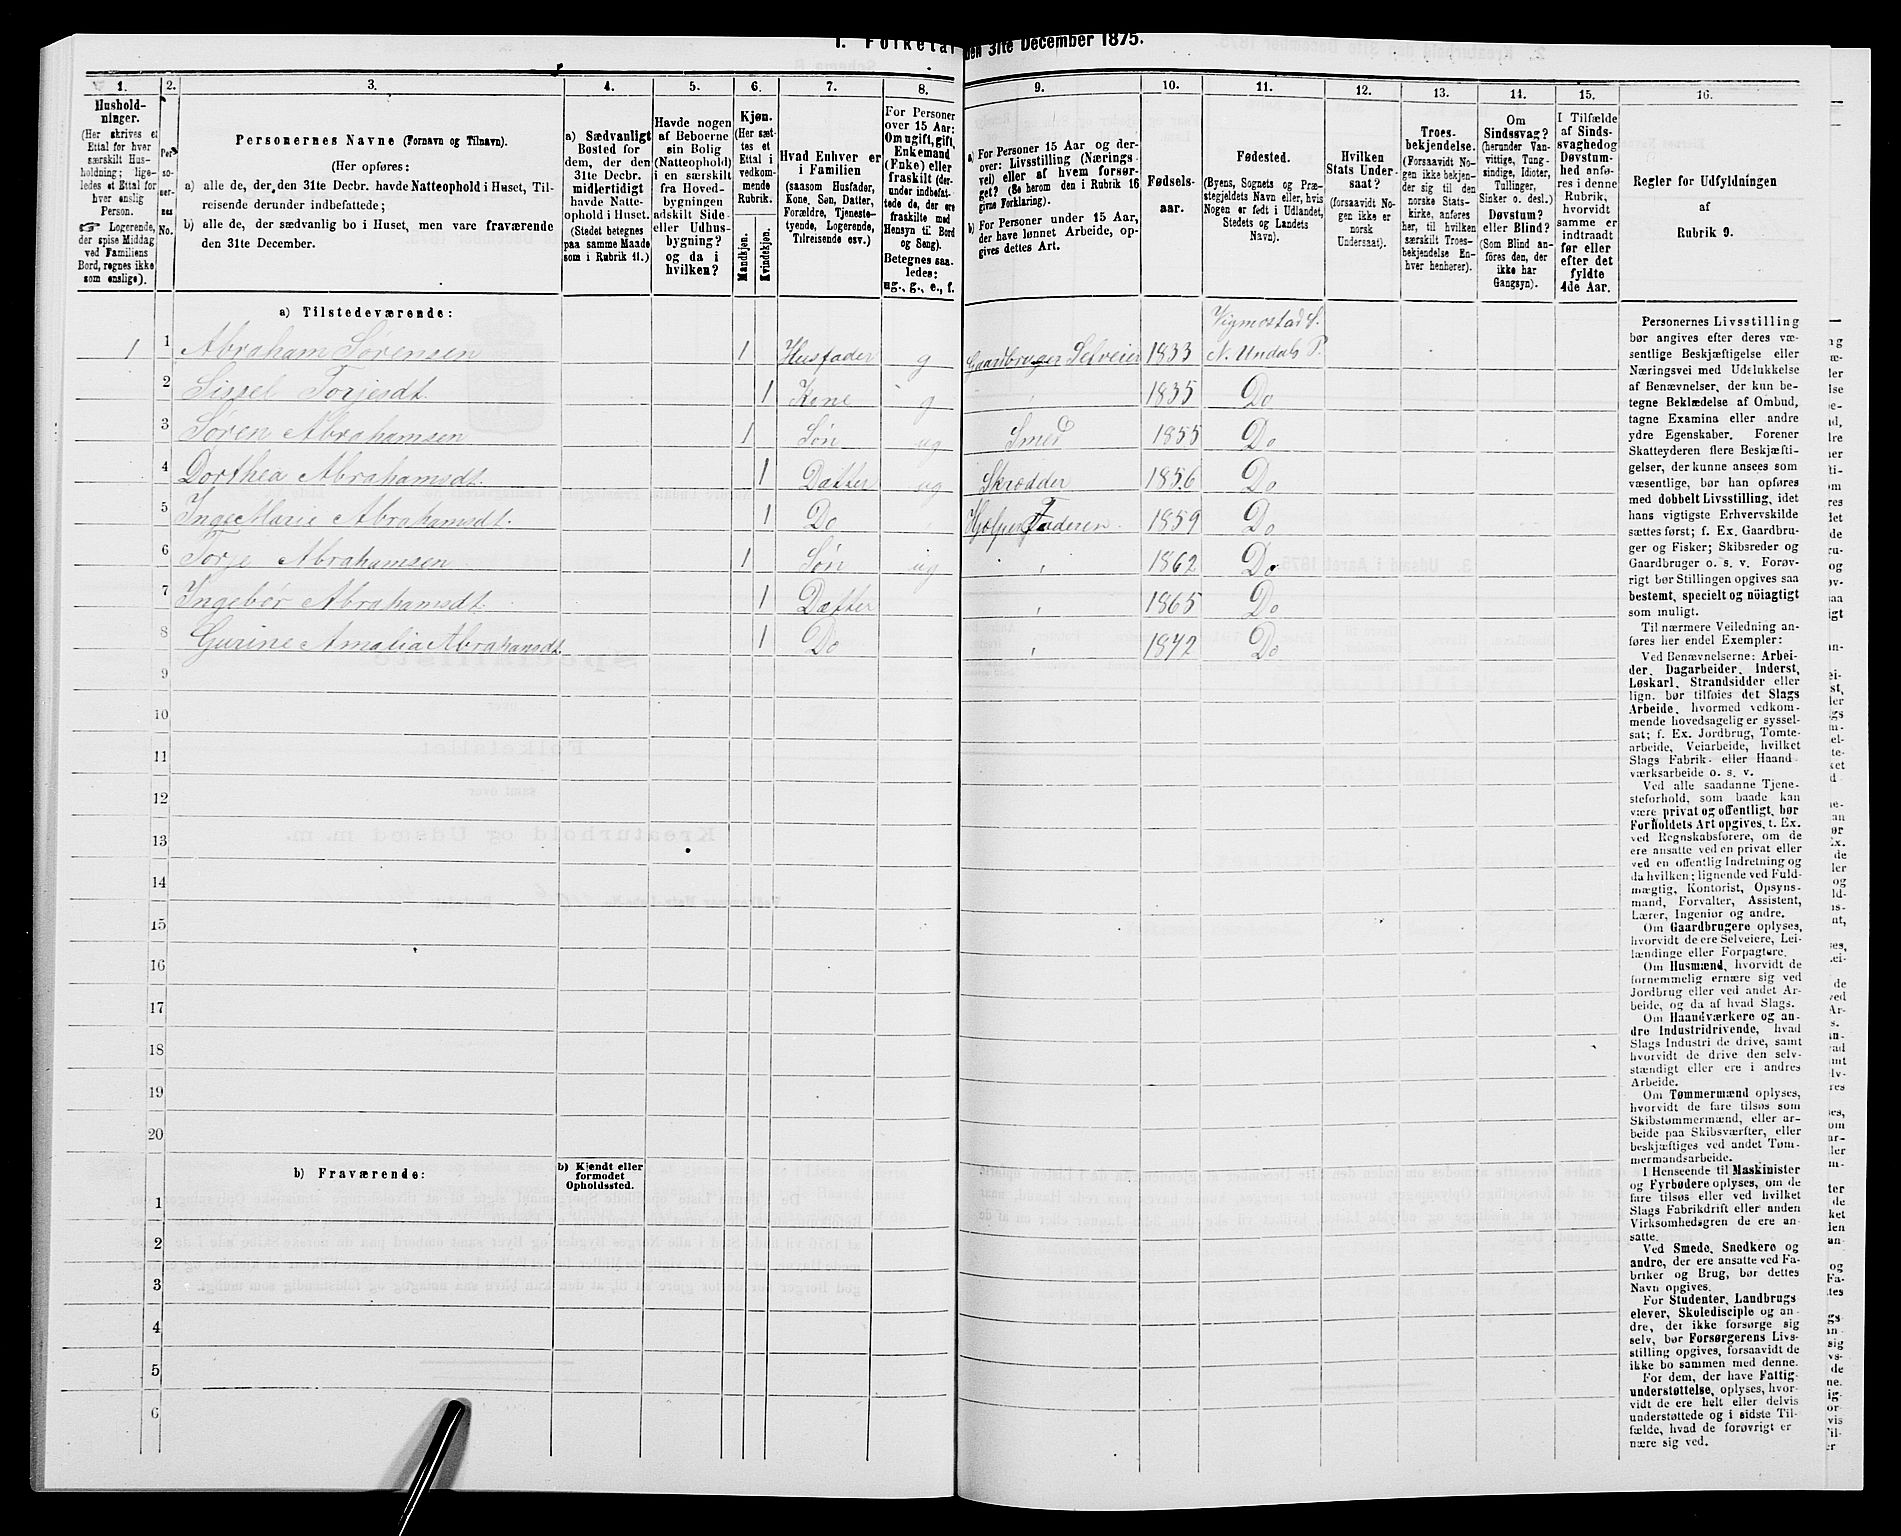 1. Folketæl
den 31te December 1875.
1.
Hushold-
ninger.
(Her skrives et
Ettal for hver
særskilt Hus-
holdning; lige-
ledes et Ettal for
hver enslig
Person.
☞ Logerende,
der spise Middag
ved Familiens
Bord, regnes ikke
som enslige).
2.
Per-
so-
ner-
nes
No.
3.
Personernes Navne (Fornavn og Tilnavn).
(Her opføres:
a) alle de, der den 31te Decbr. havde Natteophold i Huset, Til-
reisende derunder indbefattede;
b) alle de, der sædvanlig bo i Huset, men vare fraværende
den 31te December.
4.
a) Sædvanligt
Bosted for
dem, der den
31te Decbr.
midlertidigt
havde Natte-
ophold i Huset.
(Stedet betegnes
paa samme Maade
som i Rubrik 11.)
5.
Havde nogen
af Beboerne
sin Bolig
(Natteophold)
i en særskilt
fra Hoved-
bygningen
adskilt Side-
eller Udhus-
bygning?
og da i
hvilken?
6.
Kjøn.
(Her sæt-
tes et
Ettal i
vedkom-
mende
Rubrik.
Mandkjøn.
Kvindekjøn.
7.
Hvad Enhver er
i Familien
(saasom Husfader,
Kone, Søn, Datter,
Forældre, Tjeneste-
tyende, Logerende,
Tilreisende osv.)
8.
For Personer
over 15 Aar:
Om ugift, gift,
Enkemand
(Enke) eller
fraskilt (der-
under indbefat-
tede de, der ere
fraskilte med
Hensyn til Bord
og Seng).
Betegnes saa-
ledes:
ug., g., e., f.
9.
a) For Personer 15 Aar og der-
over: Livsstilling (Nærings-
vei) eller af hvem forsør-
get? (Se herom den i Rubrik 16
givne Forklaring).
b) For Personer under 15 Aar,
der have lønnet Arbeide, op-
gives dettes Art.
10.
Fødsels-
aar.
11.
Fødested.
(Byens, Sognets og Præ-
stegjeldets Navn eller, hvis
Nogen er født i Udlandet,
Stedets og Landets
Navn).
12.
Hvilken
Stats Under-
saat?
(forsaavidt No-
gen ikke er
norsk
Undersaat).
13.
Troes-
bekjendelse.
(Forsaavidt No-
gen ikke bekjen-
der sig til den
norske Stats-
kirke, anføres
her, til hvilken
særskilt Troes-
bekjendelse En-
hver henhører).
14.
Om
Sindssvag?
(herunder Van-
vittige, Tung-
sindige, Idioter,
Tullinger,
Sinker o. desl.)
Døvstum?
eller Blind?
(Som Blind an-
føres den, der
ikke har
Gangsyn).
15.
I Tilfælde
af Sinds-
svaghed og
Døvstum-
hed anfø-
res i denne
Rubrik,
hvorvidt
samme er
indtraadt
før eller
efter det
fyldte
4de Aar.
16.
Regler for Udfyldningen
af
Rubrik 9.
a) Tilstedeværende:
Vigmostad S.
1 1 Abraham Sørensen 1 Husfader g Gaardbruger Selveier 1833 N. Undals P.
2 Sissel Torjesdt. 1 Kone g 1835 Do
3 Søren Abrahamsen 1 Søn ug Smed 1855 Do
4 Dorthea Abrahamsdt. 1 Datter ug Skrædder 1856 Do
5 Inge Marie Abrahamsdt. 1 Do Hjelper Faderen 1859 Do
6 Torje Abrahamsen 1 Søn ug 1862 Do
7 Ingebor Abrahamsdt. 1 Datter 1865 Do
8 Gurine Amalia Abrahamsdt. 1 Do 1872 Do
9
10
11
12
13
14
15
16
17
18
19
20
b) Fraværende:
b) Kjendt eller
formodet
Opholdssted.
1
2
3
4
5
6
Personernes Livsstilling
bør angives efter deres væ-
sentlige Beskjæftigelse eller
Næringsvei med Udelukkelse
af Benævnelser, der kun be-
tegne Beklædelse af Ombud,
tagne Examina eller andre
ydre Egenskaber. Forener
Skatteyderen flere Beskjæfti-
gelser, der kunne ansees som
væsentlige, bør han opføres
med dobbelt Livsstilling, idet
hans vigtigste Erhvervskilde
sættes først; f. Ex. Gaardbru-
ger og Fisker; Skibsreder og
Gaardbruger o. s. v. Forøv-
rigt bør Stillingen opgives saa
bestemt, specielt og nöiagtigt
som muligt.
Til nærmere Veiledning an-
føres her endel Exempler:
Ved Benævnelserne: Arbei-
der, Dagarbeider, Inderst,
Løskarl, Strandsidder eller
lign. bør tilføies det Slags
Arbeide, hvormed vedkom-
mende hovedsagelig er syssel-
sat; f. Ex. Jordbrug, Tomte-
arbeide, Veiarbeide, hvilket
Slags Fabrik- eller Haand-
værksarbeide o. s. v.
Ved alle saadanne Tjene-
steforhold, som baade kan
være privat og offentligt, bør
Forholdets Art opgives, t. Ex.
ved Regnskabsførere, om de
ere ansatte ved en privat eller
ved en offentlig Indretning og
da hvilken; lignende ved Fuld-
mægtig, Kontorist, Opsyns-
mand, Forvalter, Assistent,
Lærer, Ingeniør og andre.
Om Gaardbrugere oplyses,
hvorvidt de ere Selveiere, Lei-
lændinge eller Forpagtere.
Om Husmænd, hvorvidt de
fornemmelig ernære sig ved
Jordbrug eller ved andet Ar-
beide, og da af hvad Slags.
Om Haandværkere og an-
dre Industridrivende, hvad
Slags Industri de drive, samt
hvorvidt de drive den selv-
stændigt eller ere i andres
Arbeide.
Om Tømmermænd oplyses,
hvorvidt de fare tilsøs som
Skibstømmermænd, eller ar-
beide paa Skibsværfter, eller
beskjæftiges ved andet Tøm-
mermandsarbeide.
I Henseende til Maskinister
og Fyrbødere oplyses, om de
fare tilsøs eller ved hvilket
Slags Fabrikdrift eller anden
Virksomhedsgren de ere an-
satte.
Ved Smede, Snedkere og
andre, der ere ansatte ved Fa-
briker og Brug, bør dettes
Navn opgives.
For Studenter, Landbrugs-
elever, Skoledisciple og an-
dre, der ikke forsørge sig
selv, bør Forsørgerens Livs-
stilling opgives, forsaavidt de
ikke bo sammen med denne.
For dem, der have Fattig-
understøttelse, oplyses, hvor-
vidt de ere helt eller delvis
understøttede og i sidste Til-
fælde, hvad de forøvrigt er
nære sig ved.